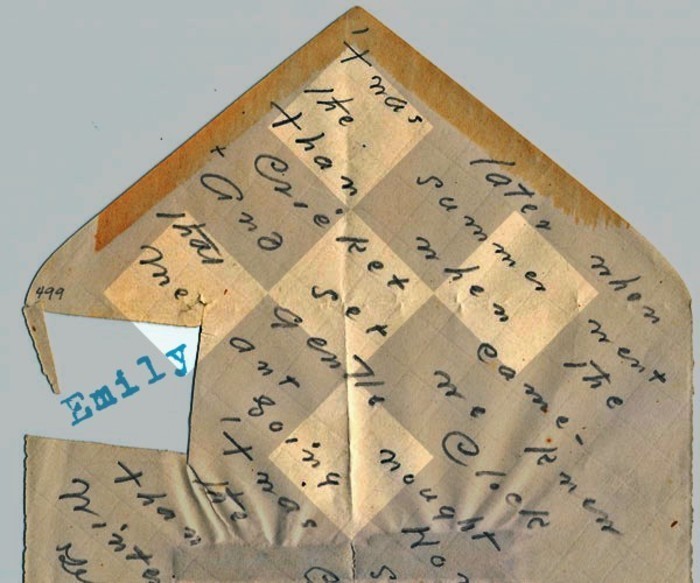 'Twas later when
the summer went
Than when the
Cricket came -
+ And yet we knew
that gentle Clock
me ant nought
Going Ho
'Twas s
the C
Than
Winter
499
Emily